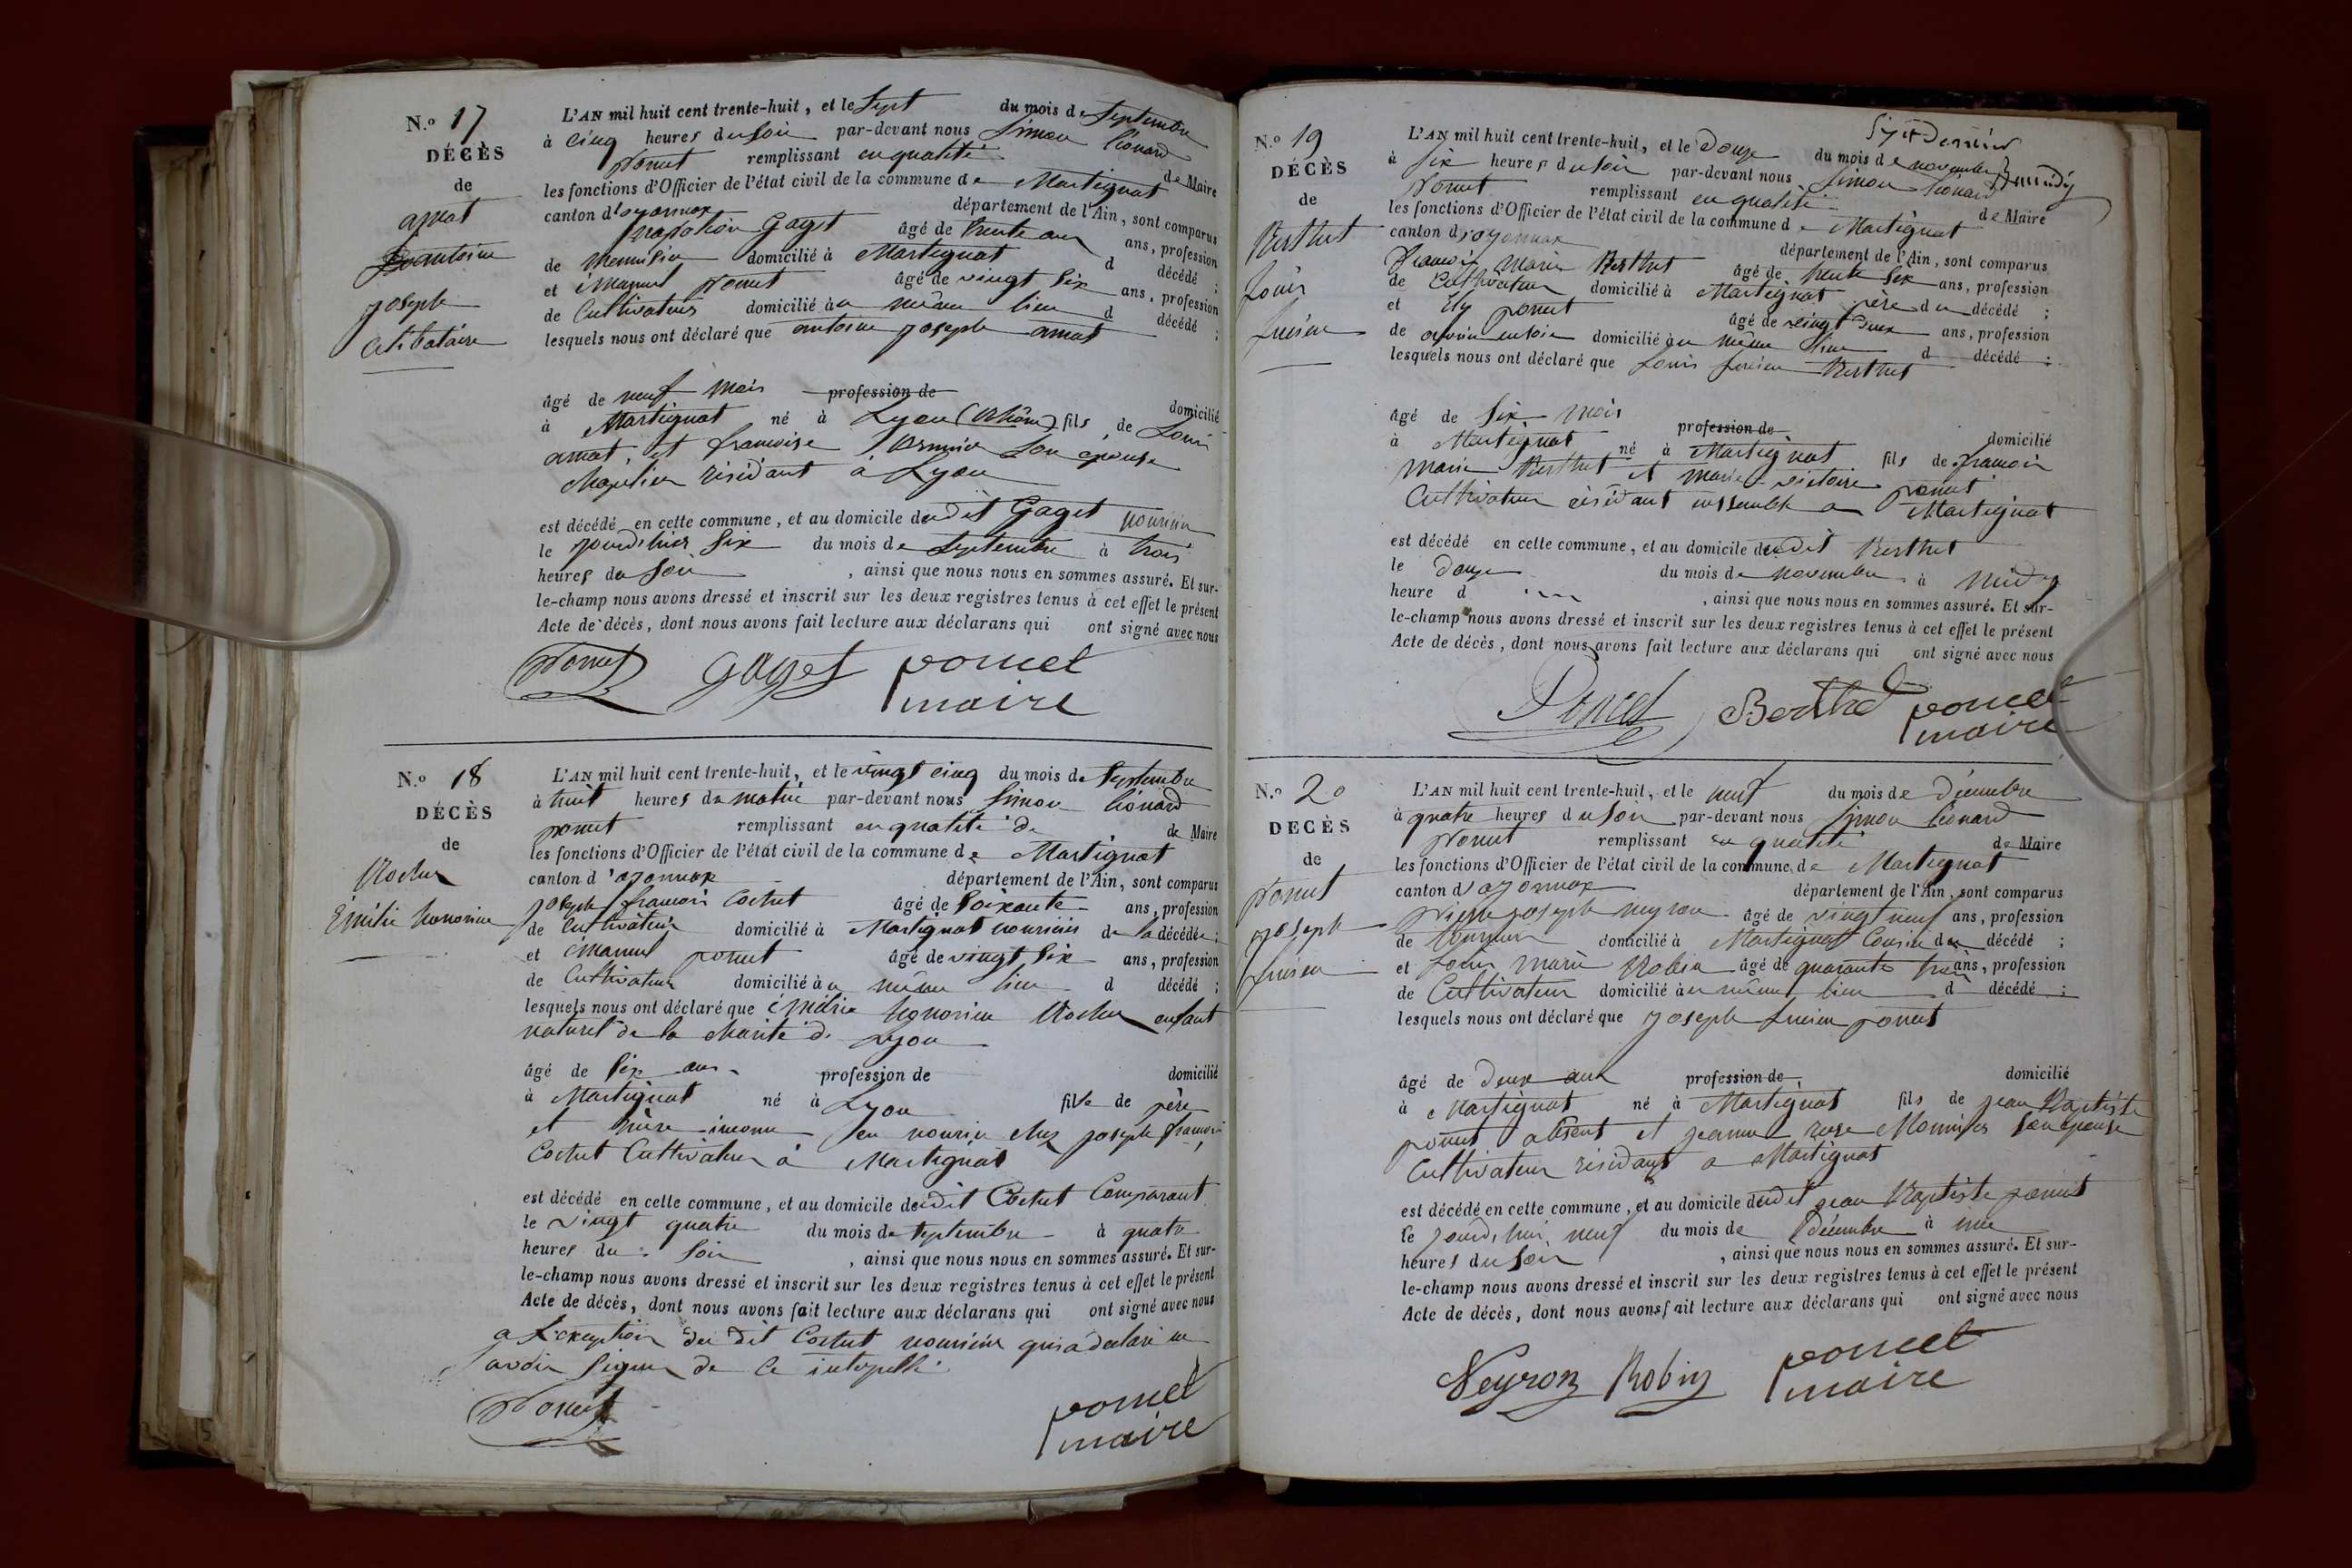 N.o 17
DÉCÈS
de
amat
antoine
joseph
Célibataire
L'AN mil huit cent trente-huit, et le Sept du mois de Septembre
à cinq heures du soir par-devant nous Simon Léonard
poncet remplissant en qualité de Maire
les fonctions d'Officier de l'état civil de la commune de Martignat
canton d'oyonnax département de l'Ain, sont comparus
Gaget âgé de trente ans ans, profession
de menuisier domicilié à Martignat d décédé ;
et émanuel poncet âgé de vingt six ans, profession
de Cultivateur domicilié à u même lieu d décédé ;
lesquels nous ont déclaré que antoine joseph amat
âgé de neuf mois profession de domicilié
à Martignat né à Lyon (Rhône) fils de Louis
amat et françoise son épouse
résidant à Lyon
est décédé en cette commune, et au domicile du dit Gaget nourricier
le jourd'hier six du mois de Septembre à trois
heures du soir, ainsi que nous nous en sommes assuré. Et sur-
le-champ nous avons dressé et inscrit sur les deux registres tenus à cet effet le présent
Acte de décès, dont nous avons fait lecture aux déclarans qui ont signé avec nous
Poncet Gaget poncet
maire
N.o 18
DÉCÈS
de
Rocher
Émilie honorine
L'AN mil huit cent trente-huit, et le vingt cinq du mois de Septembre
à huit heures du matin par-devant nous Simon Léonard
poncet remplissant en qualité de de Maire
les fonctions d'Officier de l'état civil de la commune de Martignat
canton d'oyonnax département de l'Ain, sont comparus
joseph françois Cochet âgé de soixante ans, profession
de Cultivateur domicilié à Martignat nourricier de la décédée ;
et émanuel poncet âgé de vingt six ans, profession
de Cultivateur domicilié à u même lieu d décédé ;
lesquels nous ont déclaré que émilie honorine Rocher enfant
naturel de la charité de Lyon
âgé de six ans profession de domicilié
à Martignat né à Lyon fille de père
et mère inconnu en nourrice chez joseph françois
Cochet Cultivateur à Martignat
est décédé en cette commune, et au domicile dudit Cochet Comparant
le vingt quatre du mois de septembre à quatre
heures du soir, ainsi que nous nous en sommes assuré. Et sur-
le-champ nous avons dressé et inscrit sur les deux registres tenus à cet effet le présent
Acte de décès, dont nous avons fait lecture aux déclarans qui ont signé avec nous
a L'exception du dit Cochet nourricier qui a déclaré ne
savoir signer de ce interpellé
Poncet poncet
maire
N.o 19
DÉCÈS
de
Berthet
Louis
lucien
L'AN mil huit cent trente-huit, et le douze du mois de novembre
à six heures du soir par-devant nous Simon Léonard
poncet remplissant en qualité de Maire
les fonctions d'Officier de l'état civil de la commune de Martignat
canton d'oyonnax département de l'Ain, sont comparus
françois marie Berthet âgé de trente six ans, profession
de Cultivateur domicilié à Martignat père du décédé ;
et poncet âgé de vingt deux ans, profession
de domicilié à u même lieu d décédé ;
lesquels nous ont déclaré que Louis lucien Berthet
âgé de six mois profession de domicilié
à Martignat né à Martignat fils de françois
marie Berthet et marie victoire poncet
Cultivateur résidant ensemble a Martignat
est décédé en cette commune, et au domicile dudit Berthet
le douze du mois de novembre à midy
heure d, ainsi que nous nous en sommes assuré. Et sur-
le-champ nous avons dressé et inscrit sur les deux registres tenus à cet effet le présent
Acte de décès, dont nous avons fait lecture aux déclarans qui ont signé avec nous
Poncet Berthet poncet
maire
N.o 20
DÉCÈS
de
Poncet
joseph
lucien
L'AN mil huit cent trente-huit, et le neuf du mois de décembre
à quatre heures du soir par-devant nous Simon Léonard
Poncet remplissant en qualité de Maire
les fonctions d'Officier de l'état civil de la commune de Martignat
canton d'oyonnax département de l'Ain, sont comparus
Pierre joseph neyron âgé de vingt neuf ans, profession
de tourneur domicilié à Martignat Cousin du décédé ;
et Louis marie Robin âgé de quarante trois ans, profession
de Cultivateur domicilié à u même lieu d décédé ;
lesquels nous ont déclaré que joseph lucien poncet
âgé de deux ans profession de domicilié
à Martignat né à Martignat fils de jean Baptiste
poncet absent et jeanne rose son épouse
Cultivateur résidant a Martignat
est décédé en cette commune, et au domicile dudit jean Baptiste poncet
le jourd'hui neuf du mois de décembre à une
heures du soir, ainsi que nous nous en sommes assuré. Et sur-
le-champ nous avons dressé et inscrit sur les deux registres tenus à cet effet le présent
Acte de décès, dont nous avons fait lecture aux déclarans qui ont signé avec nous
Neyron Robin poncet
maire